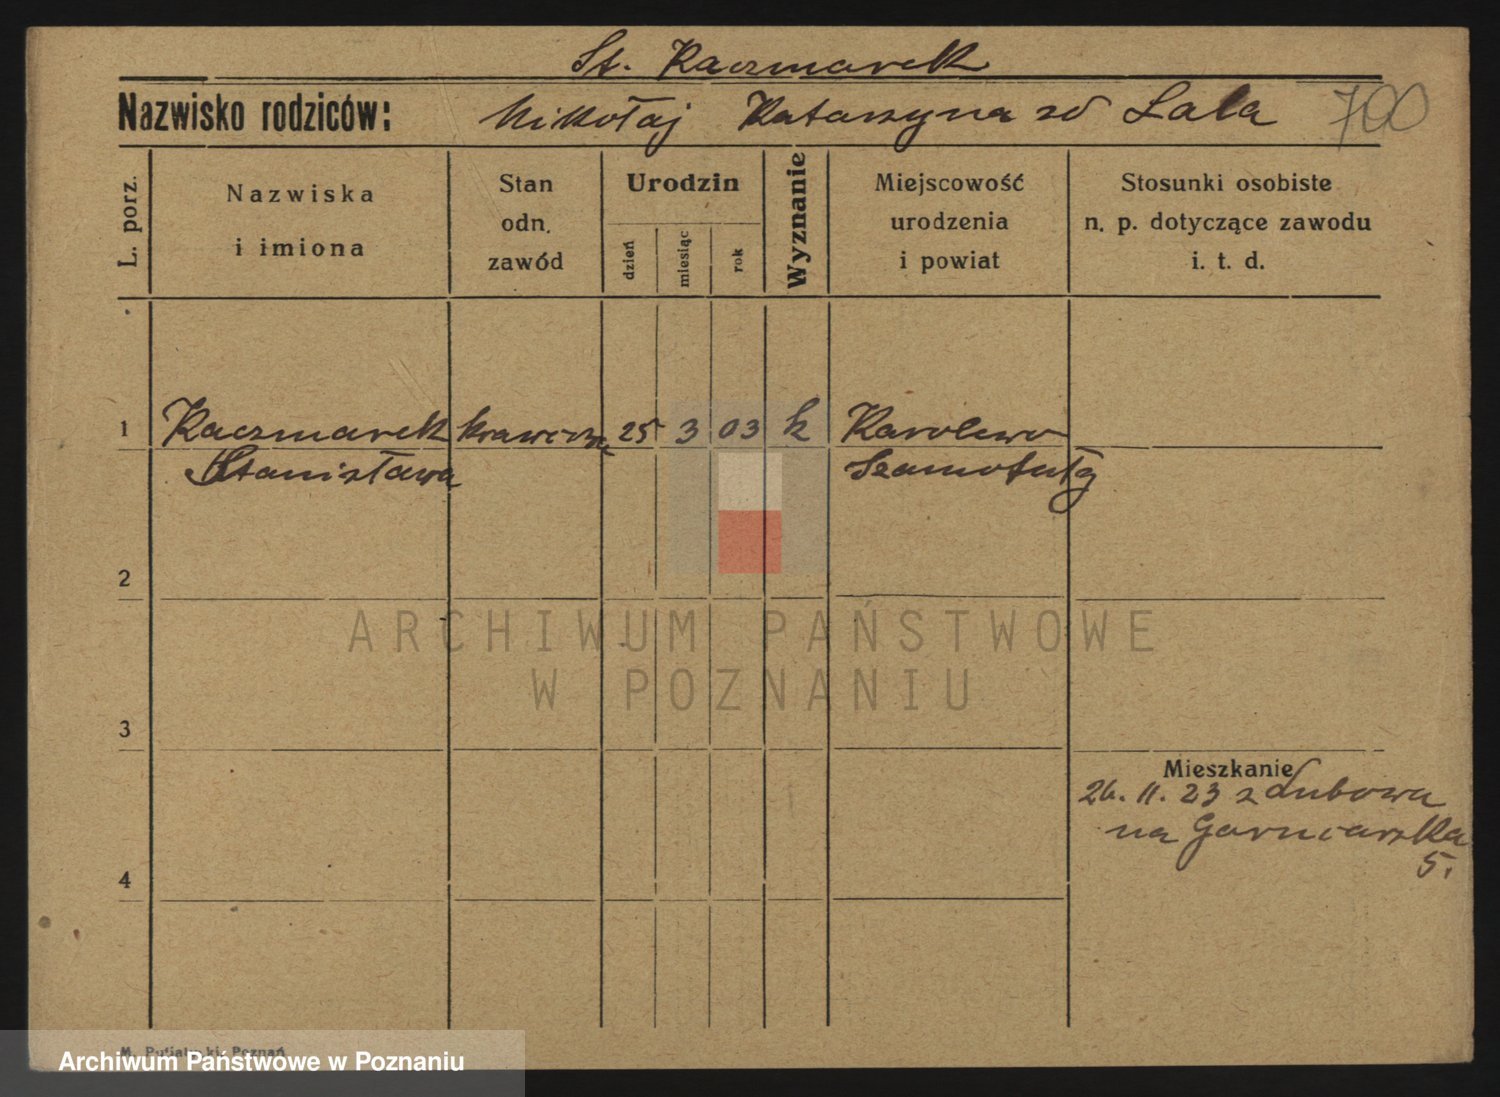 St. Kaczmarek
Nazwisko rodziców: Mikołaj Katarzyna zd Lala 700
L. porz.
Nazwiska
i imiona
Stan
odn.
zawód
Urodzin
dzień
miesiąc
rok
Wyznanie
Miejscowość
urodzenia
i powiat
Stosunki osobiste
n. p. dotyczące zawodu
i. t. d.
1 Kaczmarek krawcowa 25 3 03 k Karolewo
Stanisława Szamotuły
2
ARCHIWUM PAŃSTWOWE
W POZNANIU
3
Mieszkanie
26. 11. 23 z Lubowa
na Garncarska
5.
4
Poznań
Archiwum Państwowe w Poznaniu